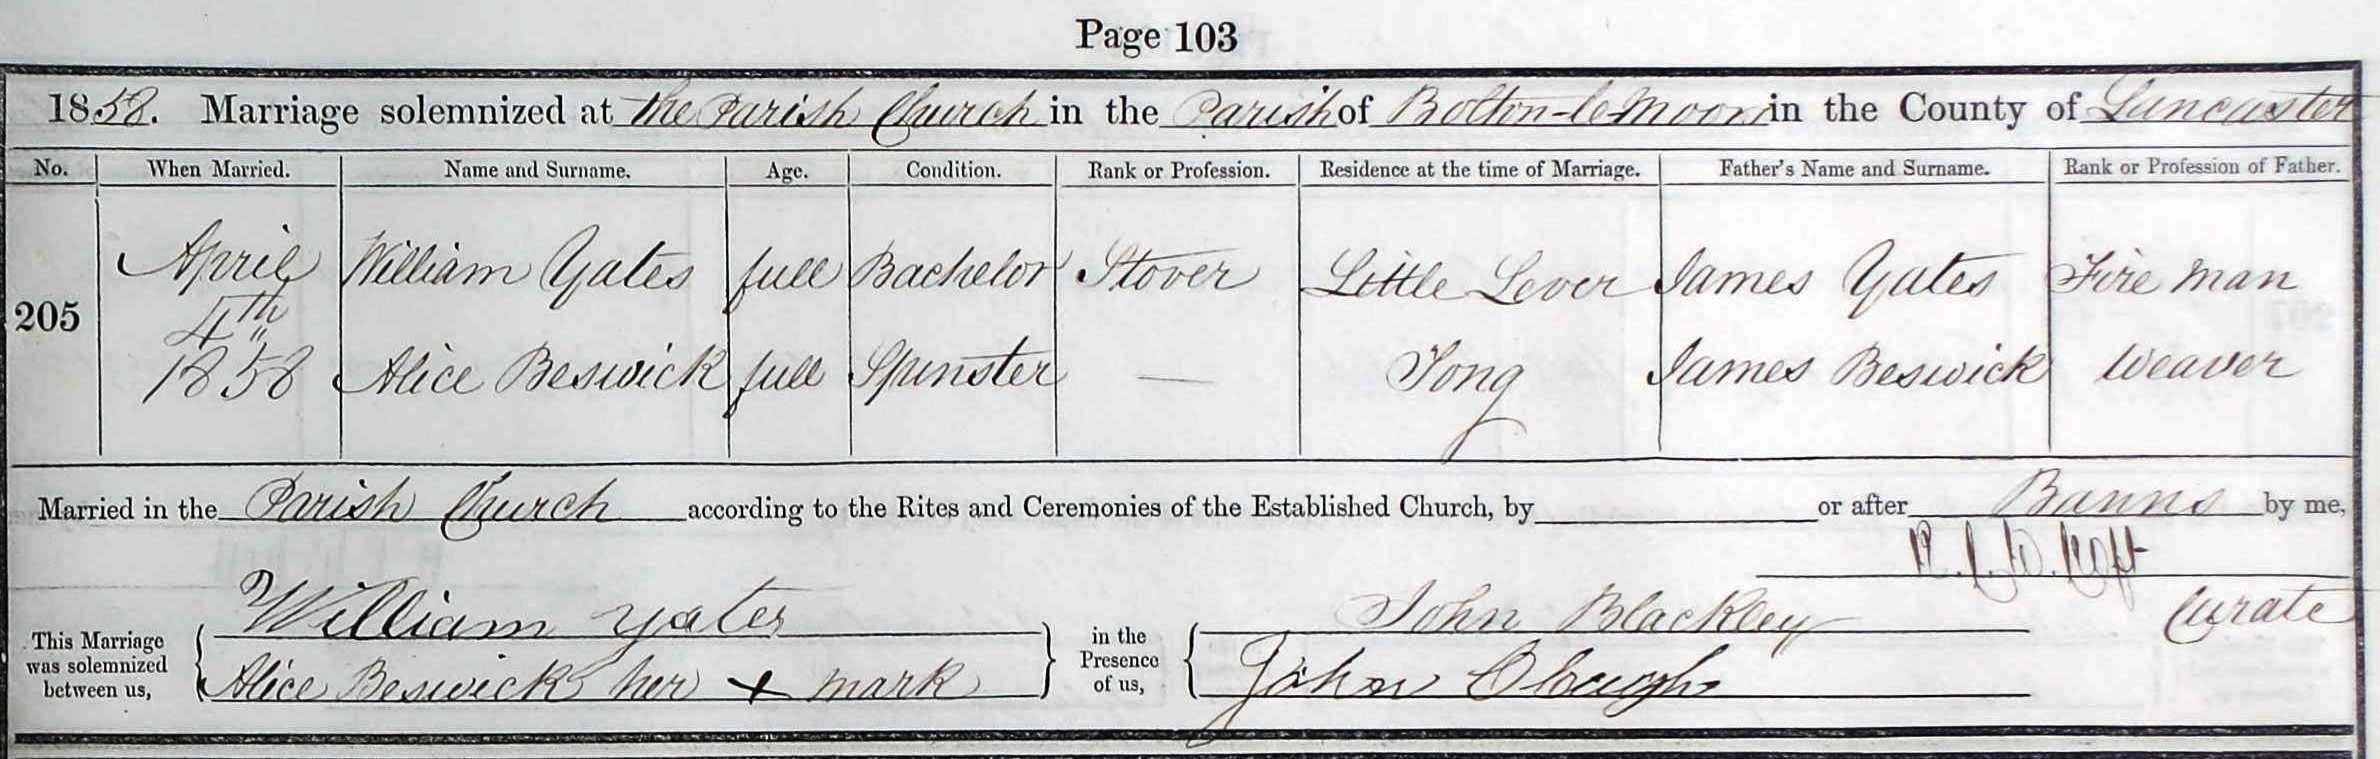 Page 103
1858. Marriage solemnized at the Parish Church in the Parish of Bolton-le-Moors in the County of Lancaster
No. When Married. Name and Surname. Age. Condition. Rank or Profession. Residence at the time of Marriage. Father's Name and Surname. Rank or Profession of Father.
205 April 4th 1858 William Yates full Bachelor Stover Little Lever James Yates Fire man
Alice Beswick full Spinster — Tong James Beswick Weaver
Married in the Parish Church according to the Rites and Ceremonies of the Established Church, by or after Banns by me,
Curate
This Marriage was solemnized between us, William Yates in the Presence of us, John Blackley
Alice Beswick her + mark John